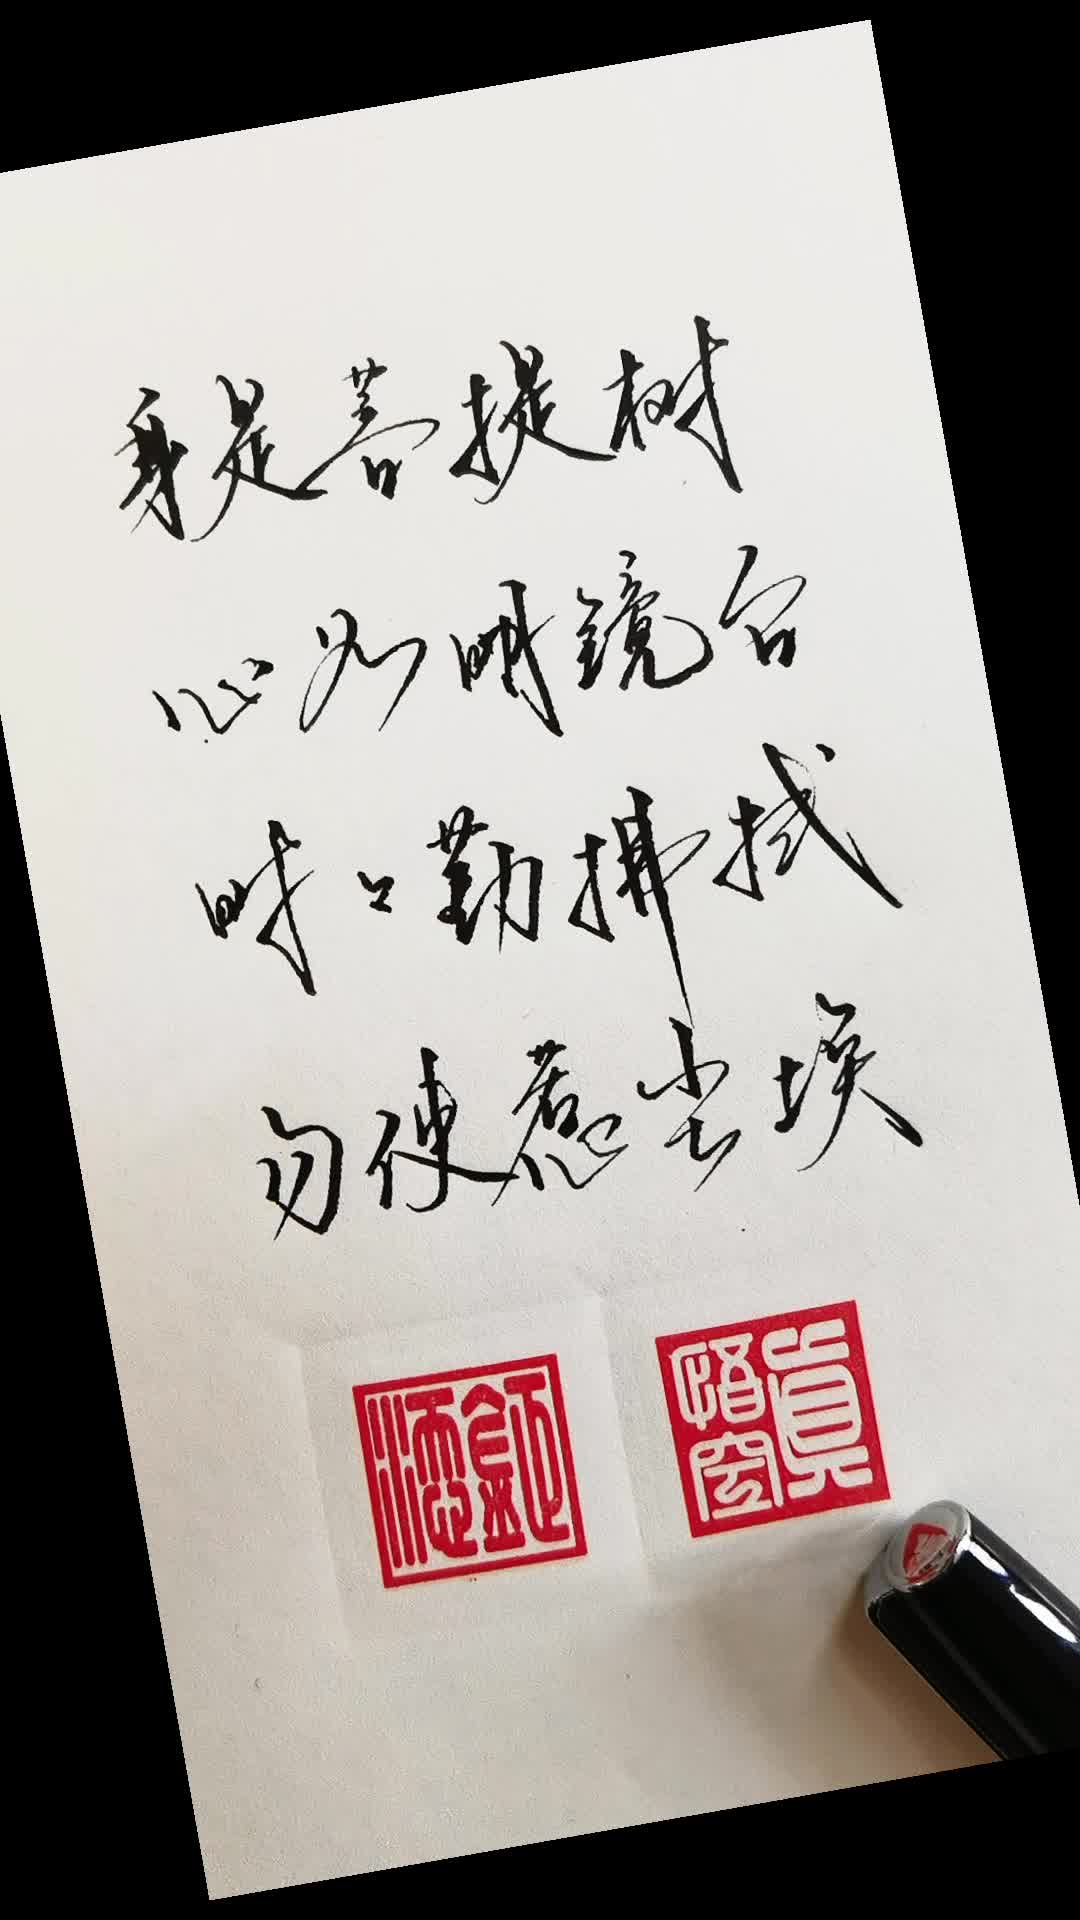 身是菩提树
心如明镜台
时时勤拂拭
勿使惹尘埃